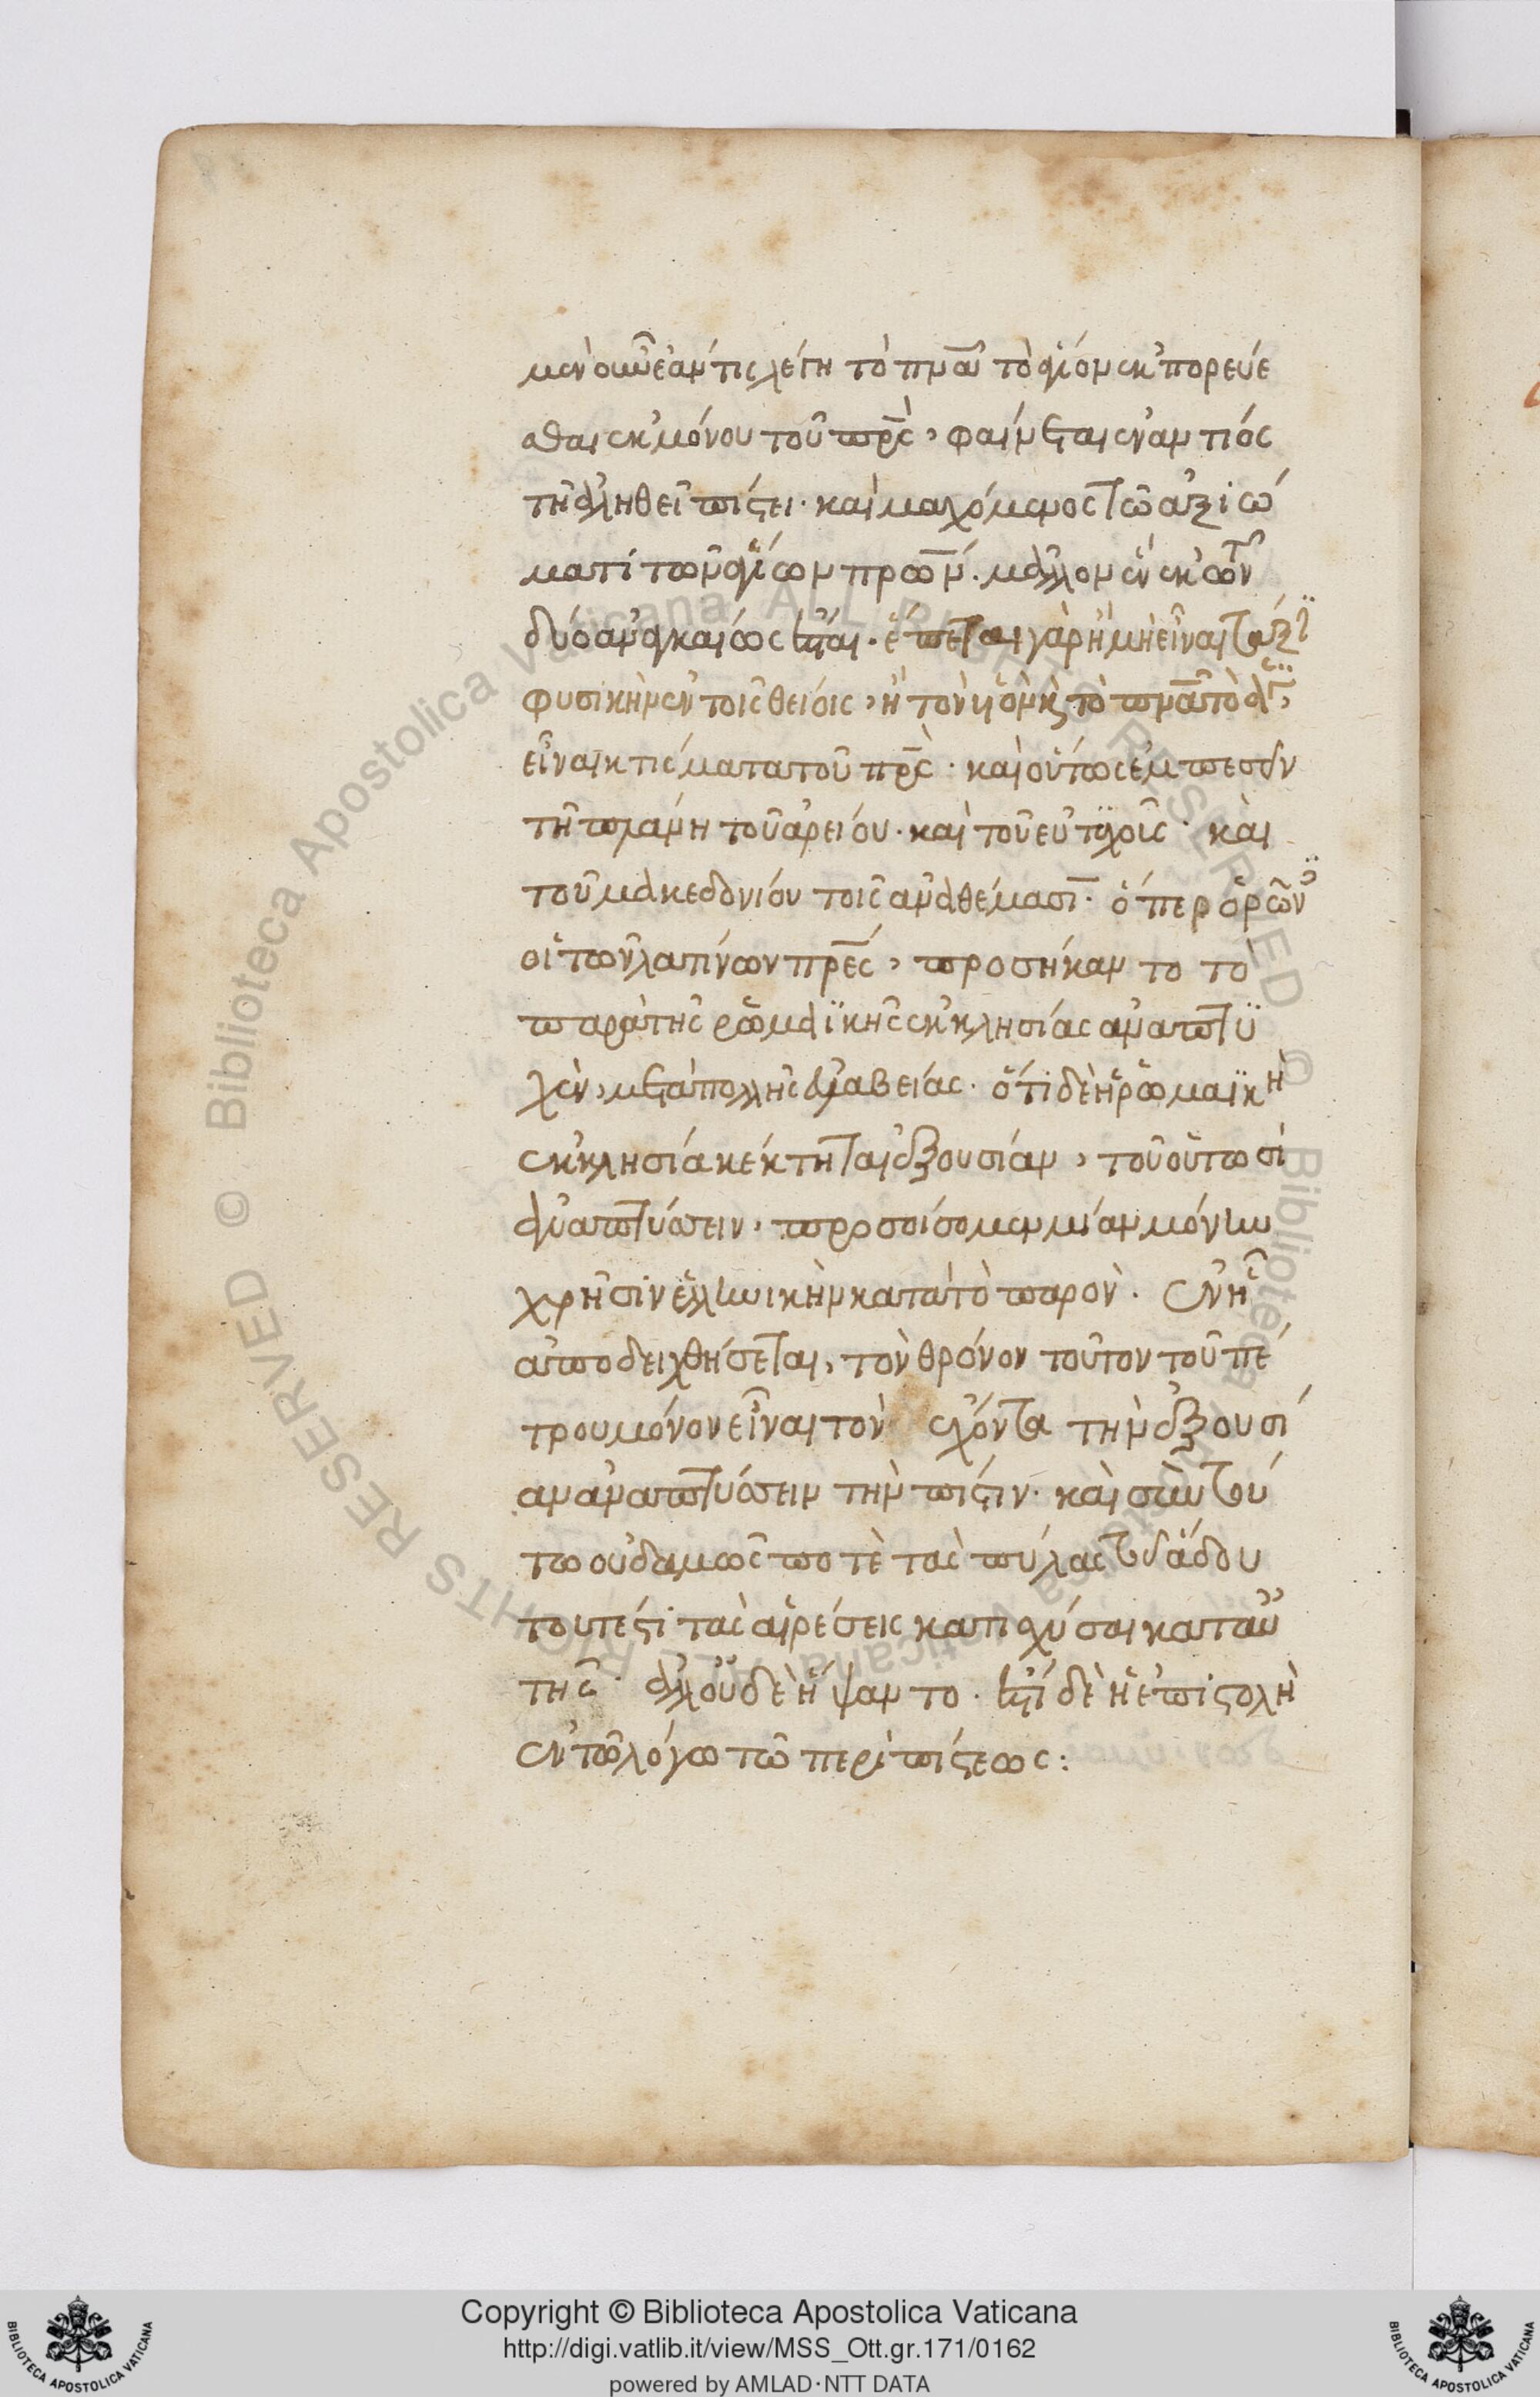 μὲν οὖν ἐάν τις λέγη τὸ πνᾶ τὸ ἅγιον ἐκπορεύε
σθαι ἐκ μόνου τοῦ πρς, φαίνεται ἐναντίος
τῆ ἀληθεῖ πίστει· καὶ μαχόμενος τῶ ἀξιώ
ματι τῶν ἁγίων προσώ· μᾶλλον
δύο ἀναγκαίως ἕπεται γὰρ ἢ μὴ εἶναι τάξι
φυσικὴν ἐν τοῖς θείοις, ἢ τὸν υἱὸν καὶ τὸ πνᾶ τὸ ἅγι,
εἶναι κτίσματα τοῦ πρς· καὶ οὕτως ἐμπεσεῖν
τῆ πλάνη τοῦ ἀρείου· καὶ τοῦ εὐτυχοῖς· καὶ
τοῦ μακεδονίου τοῖς ἀναθέμασι· ὅπερ ὁρῶν
οἱ τῶν λατίνων πρες, προσῆκαν το τὸ
παρὰ τῆς ῥωμαϊκῆς ἐκκλησίας ἀναπτυ
χὲν, μετὰ πολλῆς εὐλαβείας· ὅτι δὲ ἡ ῥωμαϊκὴ
ἐκκλησία κέκτηται ἐξουσίαν, τοῦ οὑτωσὶ
ἀναπτύσσειν, προσοίσομεν μίαν μόνην
χρῆσιν ἑλληνικὴν κατὰ τὸ παρὸν· ἐν ἧ
ἀποδειχθήσεται, τὸν θρόνον τοῦτον τοῦ πέ
τρου μόνον εἶναι τὸν ἔχοντα τὴν ἐξουσί
αν ἀναπτύσσειν τὴν πίστιν· καὶ σὺν τού
τω οὐδαμῶς ποτὲ τὰς πύλας τοῦ ἅδου
τουτέστι τὰς αἱρέσεις κατισχύσαι κατ αὐ
τῆς· ἀλλ' οὐδὲ ἥψαντο· ἔστι δὲ ἡ ἐπιστολὴ
ἐν τῶ λόγω τῶ περὶ πίστεως:
Copyright © Biblioteca Apostolica Vaticana
http://digi.vatlib.it/view/MSS_Ott.gr.171/0162
powered by AMLAD·NTT DATA